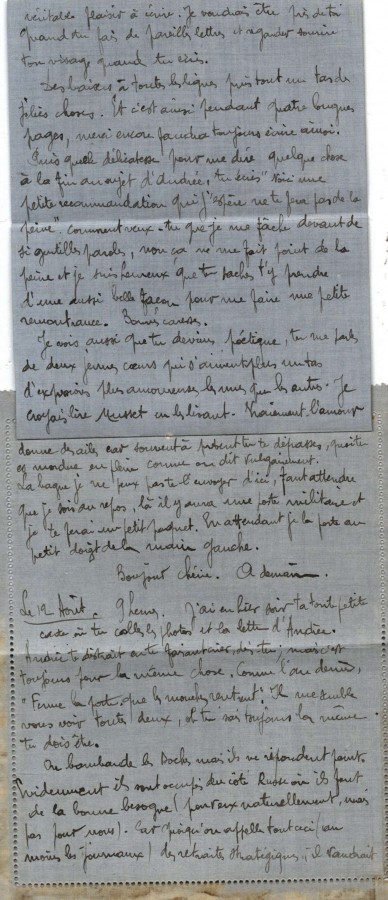 véritable plaisir à écrire. Je voudrais être près de toi
quand tu fais de pareilles lettres et regarder sourire
ton visage quand tu écris.
Des baisers à toutes les lignes puis tout un tas de
jolies choses. Et c'est ainsi pendant quatre longues
pages, merci encore faudra toujours écrire ainsi.
Puis quelle délicatesse pour me dire quelque chose
à la fin au sujet d'Andrée, tu écris "Voici une
petite recommandation qui j'espère ne te fera pas de la
peine". Comment veux-tu que je me fâche devant de
si gentilles paroles, non ça ne me fait point de la
peine et je suis heureux que tu saches t'y prendre
d'une aussi belle façon pour me faire une petite
remontrance. Bonnes caresses.
Je vois aussi que tu deviens poétique, tu me parles
de deux jeunes cœurs qui s'aiment plus un tas
d'expressions plus amoureuses les unes que les autres. Je
croyais lire Musset en les lisant. Vraiement l'amour
donne des ailes car souvent à présent tu te dépasses,
es mordue en plein comme on dit vulgairement.
La bague je ne peux pas te l'envoyer d'ici, faut attendre
que je sois au repos, là il y aura une poste militaire et
je te ferai un petit paquet. En attendant je la porte au
petit doigt de la main gauche.
Bonjour chérie. A demain.
Le 12 Août. 9 heures. J'ai eu hier soir ta toute petite
carte où tu colles les photos et la lettre d'Andrée.
Andrée te distrait en te faisant rire, dis-tu, mais c'est
toujours pour la même chose. Comme l'an dernier,
"Ferme la porte que les mouches rentrent". Il me semble
vous voir toutes deux, et tu sais toujours la même
tu dois être.
On bombarde les Boches mais ils ne répondent point.
Evidemment ils sont occupés du côté Russe où ils font
de la bonne besogne (pour eux naturellement, mais
pas pour nous). Car puisqu'on appelle tout ceci (du
moins les journaux) des retraites stratégiques, il vaudrait